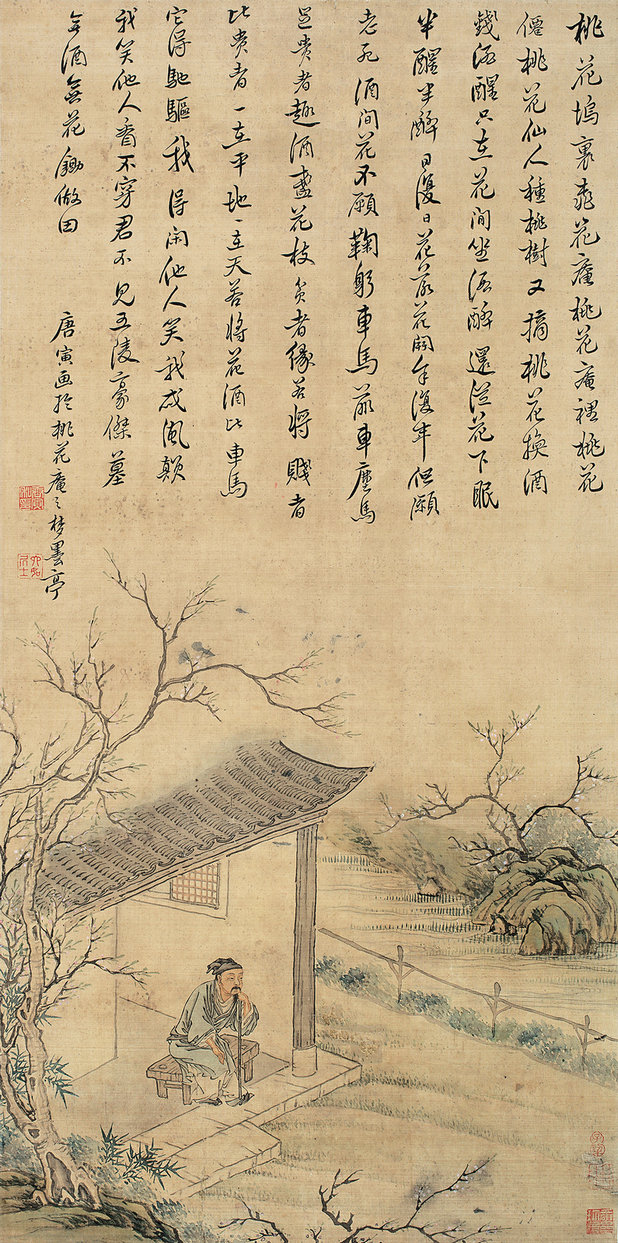 桃花塢裏桃花庵桃花庵裡桃花
僊桃花仙人種桃樹又摘桃花換酒
錢酒醒只在花間坐酒醉還從花下眠
半醒半醉日復日花落花開年復年但願
老死酒间花不願鞠躬車馬前車塵馬
足貴者趣酒盞花枝貧者緣若將賤者
比貴者一在平地一在天若將花酒比車馬
它得馳驅我得闲他人笑我成風顛
我笑他人看不穿君不見五陵豪傑墓
無酒無花鋤做田
唐寅画於桃花庵之夢墨亭
六如居士